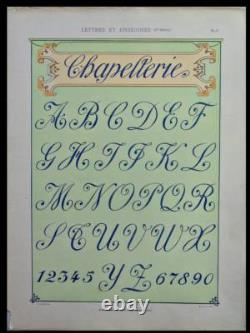 LETTRES ET ENSEIGNES
Chapellerie
A B C D E F
G H I J K L
M N O P Q R
S T U V W X
1 2 3 4 5 Y Z 6 7 8 9 0